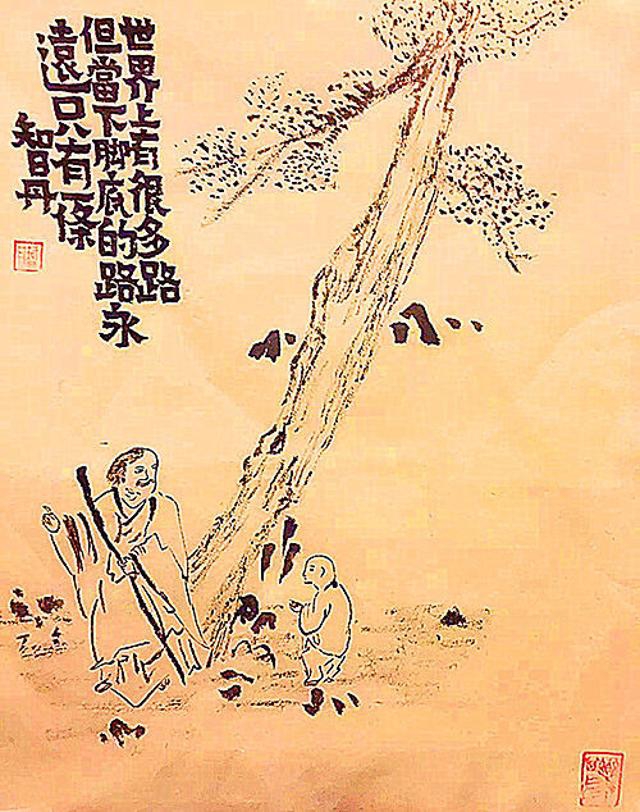 世界上有很多路
但當下脚底的路永
遠只有一條
智丹